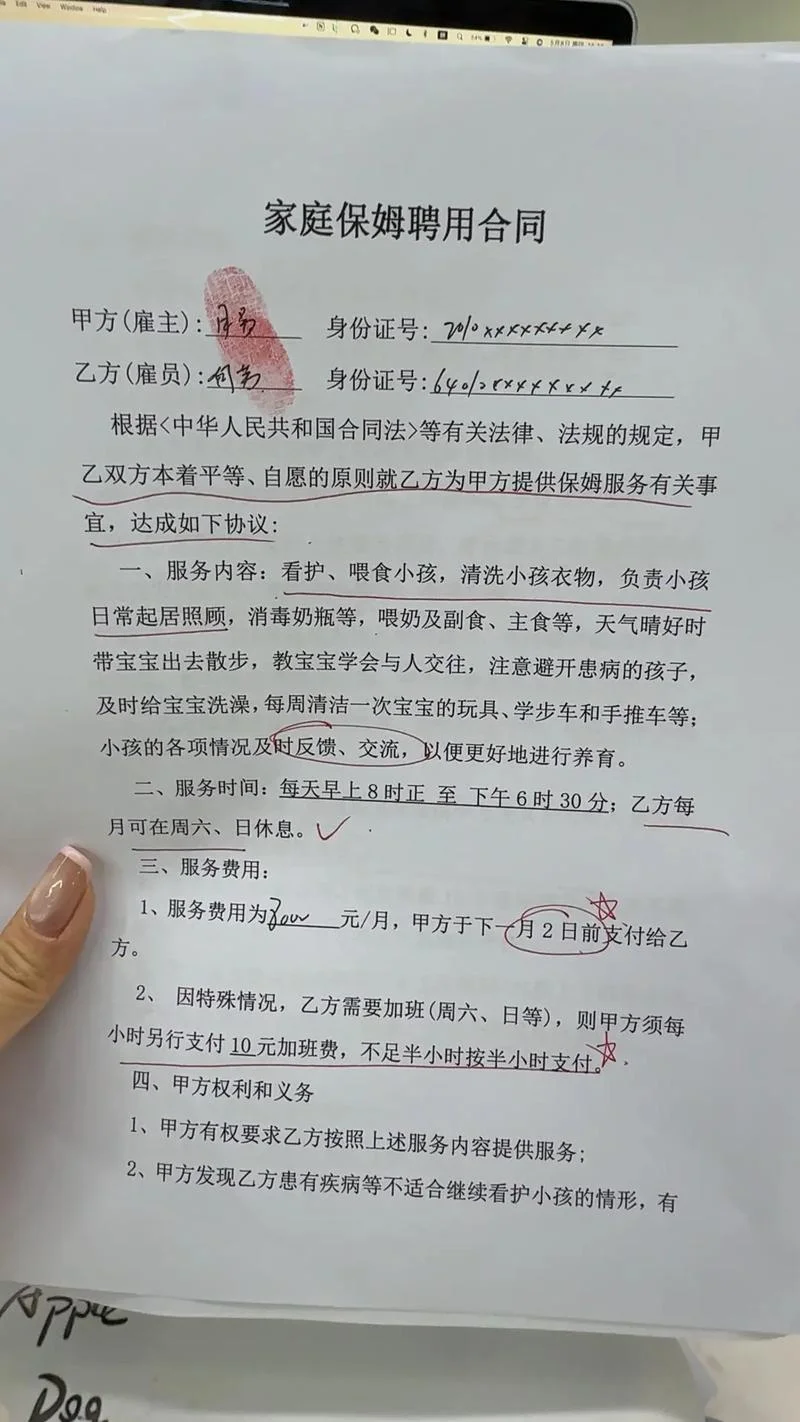 Edit View Window Help
家庭保姆聘用合同
甲方(雇主): 身份证号:
乙方(雇员): 身份证号:
根据<中华人民共和国合同法>等有关法律、法规的规定，甲
乙双方本着平等、自愿的原则就乙方为甲方提供保姆服务有关事
宜，达成如下协议:
一、服务内容：看护、喂食小孩，清洗小孩衣物，负责小孩
日常起居照顾，消毒奶瓶等，喂奶及副食、主食等，天气晴好时
带宝宝出去散步，教宝宝学会与人交往，注意避开患病的孩子，
及时给宝宝洗澡，每周清洁一次宝宝的玩具、学步车和手推车等；
小孩的各项情况及时反馈、交流，以便更好地进行养育。
二、服务时间：每天早上8时正 至 下午6时30分；乙方每
月可在周六、日休息。
三、服务费用：
1、服务费用为 元/月，甲方于下一月2日前支付给乙
方。
2、 因特殊情况，乙方需要加班(周六、日等)，则甲方须每
小时另行支付10元加班费，不足半小时按半小时支付。
四、甲方权利和义务
1、甲方有权要求乙方按照上述服务内容提供服务;
2、甲方发现乙方患有疾病等不适合继续看护小孩的情形，有
Apple
Dog